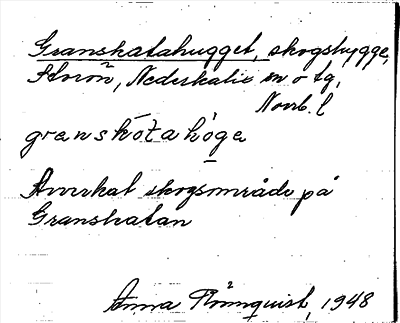 Granskatahugget, skogshygge,
Storön, Nederkalix sn o tg,
Norrb. l
granskötahöge
Avverkat skogsområde på
Granskatan
Anna Rönnquist, 1948